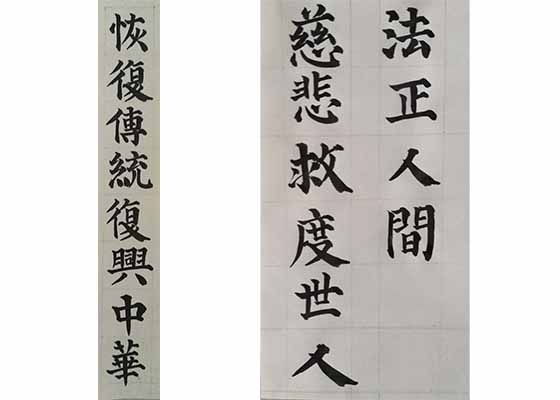 恢復傳統復興中華
法正人間
慈悲救度世人